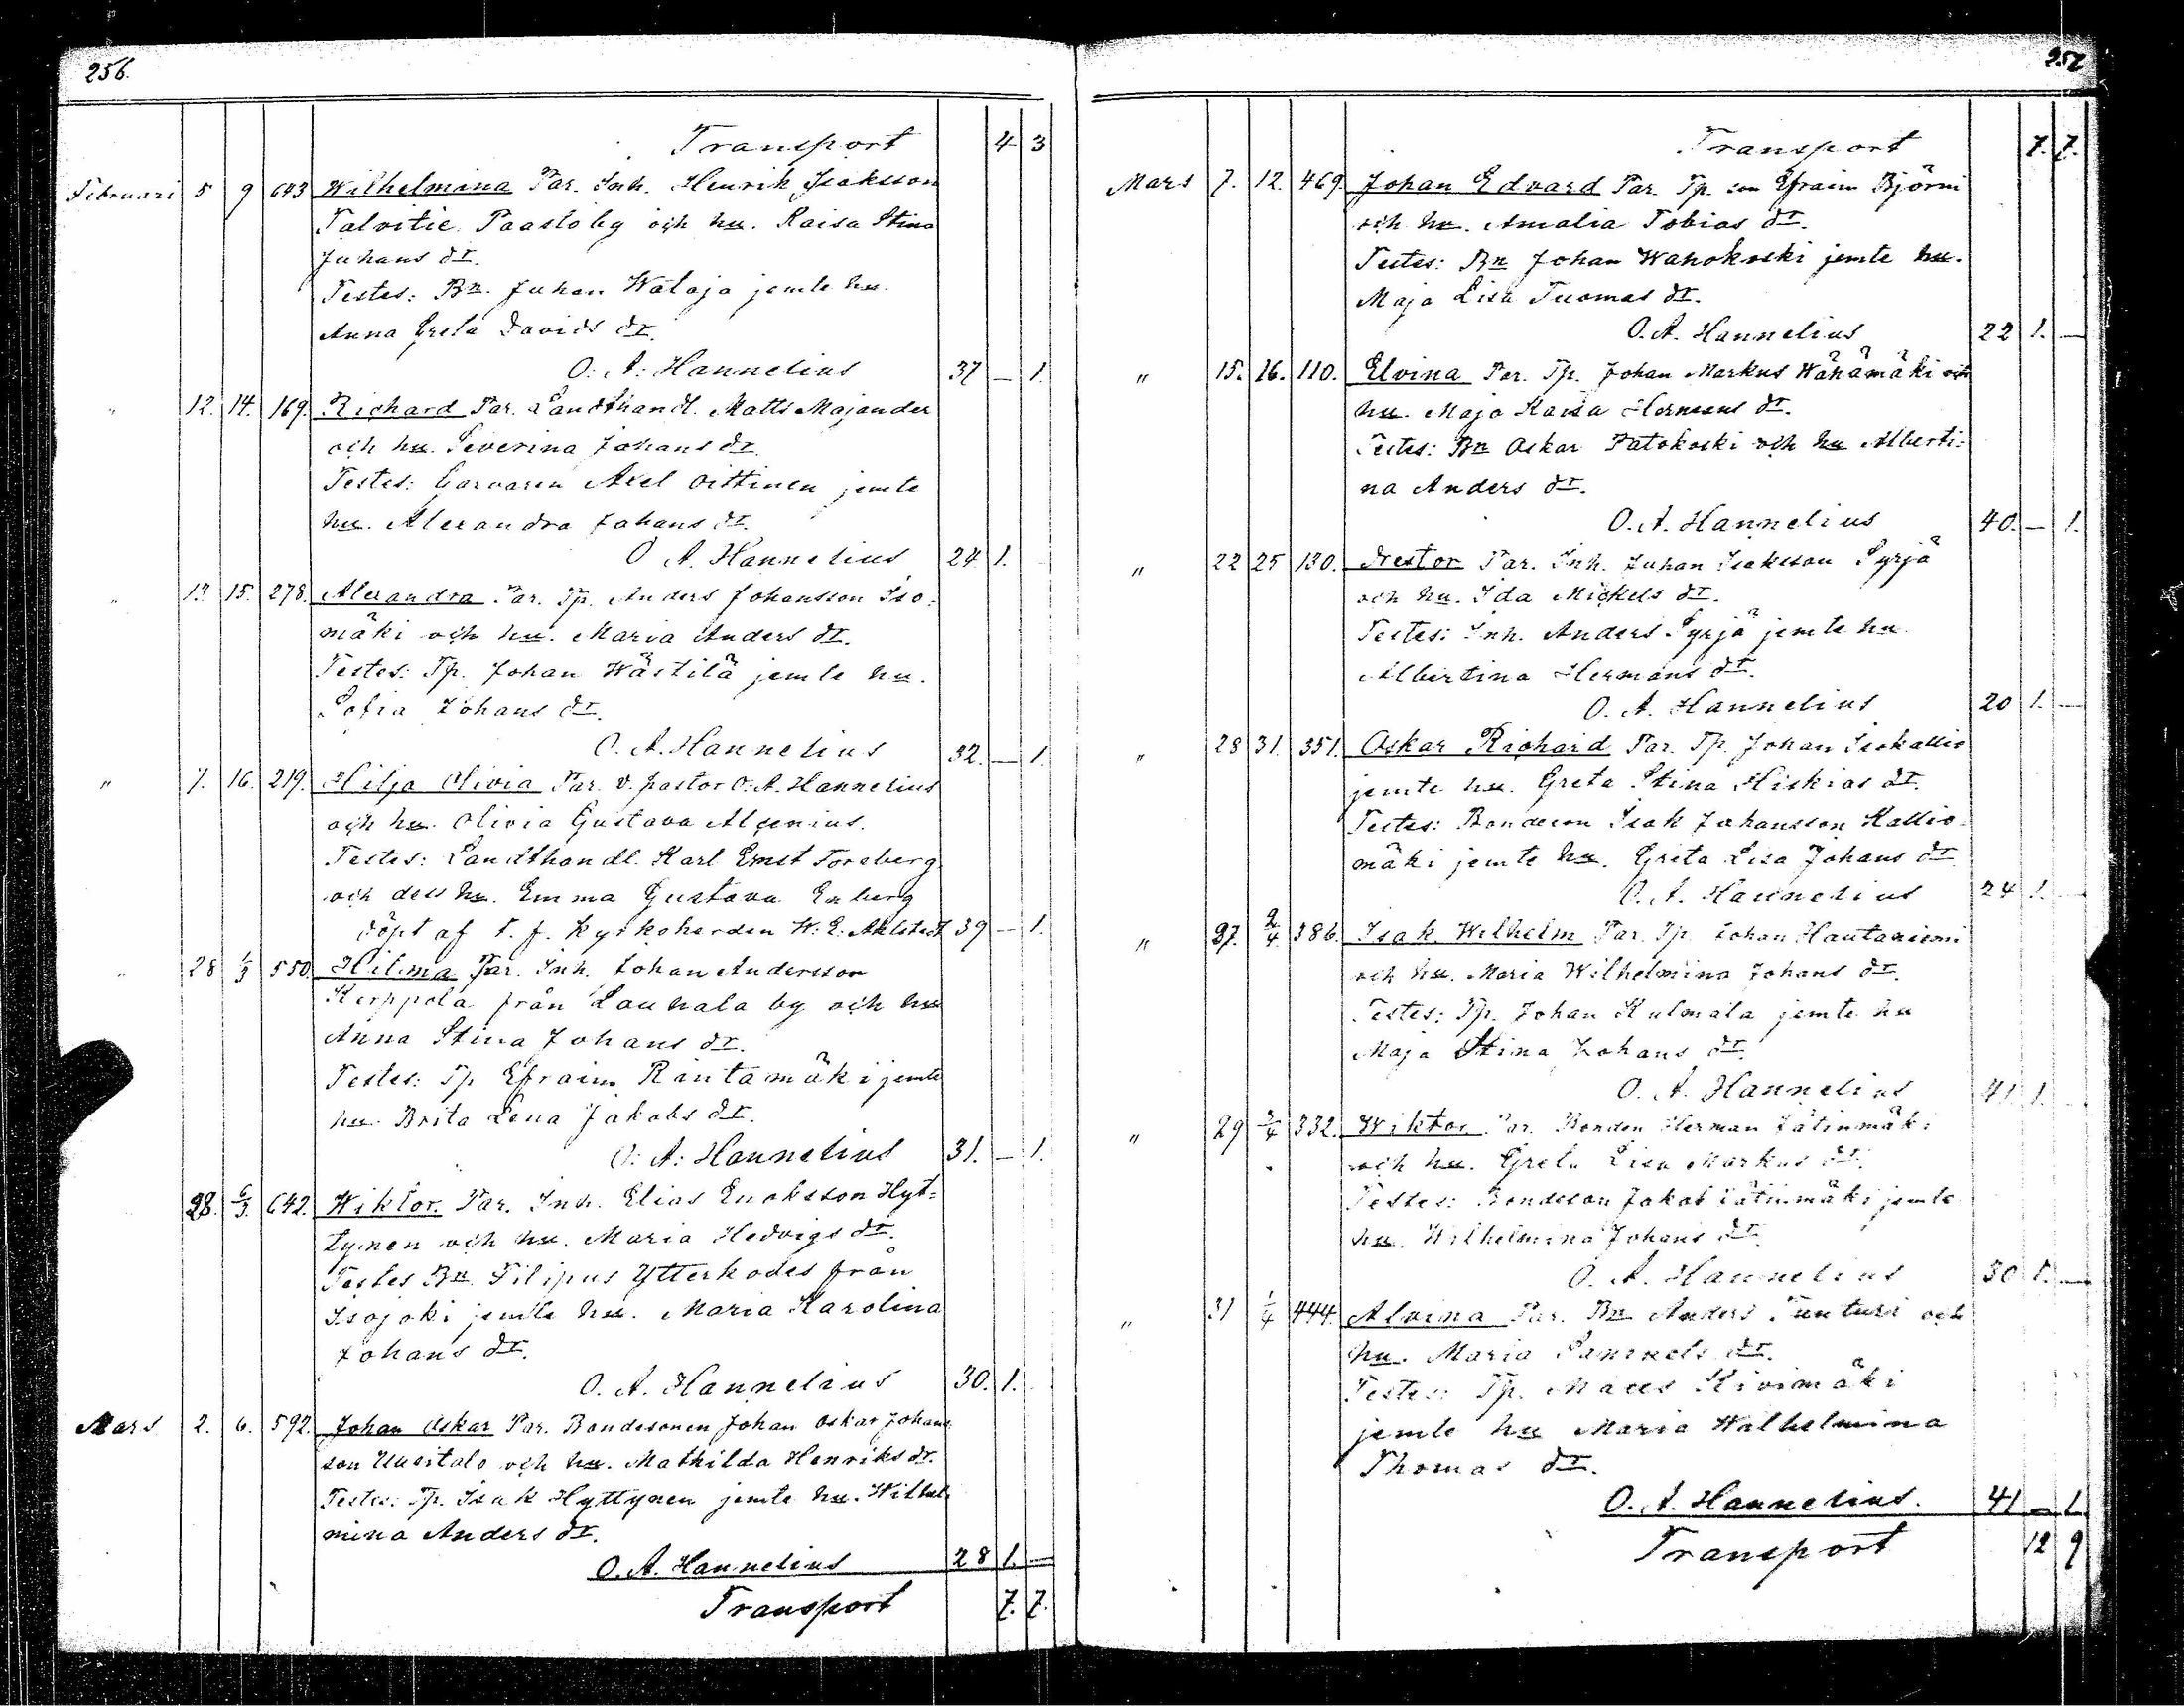 256.
Transport 4 3
Februari 5 9 643 Wilhelmina Par. Inh. Henrik Isaksson
Talvitie Paasto by och hu. Kaisa Stina
Juhans dr.
Testes: Bn. Juhan Wataja jemte hu.
Anna Greta Davids dr.
O. A. Hannelius 37 — 1.
" 12. 14. 169. Richard Par. Landthandl. Matts Majander
och hu. Severina Johans dr.
Testes: Garvaren Axel Oittinen jemte
hu. Alexandra Johans dr.
O A. Hannelius 24 1.
" 13. 15. 278. Alexandra Par. Tp. Anders Johansson Iso-
mäki och hu. Maria Anders dr.
Testes: Tp. Johan Wästilä jemte hu.
Sofia Johans dr.
O. A. Hannelius 32. — 1.
" 7. 16. 219. Hilja Olivia Par. v. pastor O. A. Hannelius
och hu. Olivia Gustava Alcenius.
Testes: Landthandl. Karl Ernst Forsberg
och dess hu. Emma Gustava Enberg
döpt af t. f. Kyrkoherden W. E. Ahlstedt 39 — 1.
" 28 1/3 550. Hilma Par. Inh. Johan Andersson
Kerppola från Lauhala by och hu
Anna Stina Johans dr.
Testes: Tp Efraim Rintamäki jemte
hu. Brita Lena Jakobs dr.
O. A: Hannelius 31. — 1.
28. 6/3 642. Wiktor. Par. Inh. Elias Enoksson Hyt-
tynen och hu. Maria Hedvigs dr.
Testes Bn. Filipus Ytterkodes från
Isojoki jemte hu. Maria Karolina
Johans dr.
O. A. Hannelius 30. 1.
Mars 2. 6. 592. Johan Oskar Par. Bondesonen Johan Oskar Johans
son Uusitalo och hu. Mathilda Henriks dr.
Testes: Tp. Isak Hyttynen jemte hu. Wilhel-
mina Anders dr.
O. A. Hannelius 28 1. —
Transport 7. 7.
257
Transport 7. 7.
Mars 7. 12. 469. Johan Edvard Par. Tp. son Efraim Björni
och hu. Amalia Tobias dr.
Testes: Bn Johan Wanokoski jemte hu.
Maja Lisa Tuomas dr.
O. A. Hannelius 22 1. —
" 15. 16. 110. Elvina Par. Tp. Johan Markus Wähämäki och
hu. Maja Kaisa Hermans dr.
Testes: Bn Oskar Patokoski och hu Alberti-
na Anders dr.
O. A. Hannelius 40. — 1.
" 22 25 130. Nestor Par. Inh. Juhan Isaksson Syrjä
och hu. Ida Mickels dr.
Testes: Inh. Anders Syrjä jemte hu
Albertina Hermans dr.
O. A. Hannelius 20 1. —
" 28 31. 351. Oskar Richard Par. Tp. Johan Isokallio
jemte hu. Greta Stina Hiskias dr.
Testes: Bondeson Isak Johansson Kallio-
mäki jemte hu. Greta Lisa Johans dr
O. A. Hannelius 24 1. —
" 27. 2/4 386. Isak Wilhelm Par. Tp. Johan Hautaniemi
och hu. Maria Wilhelmina Johans dr.
Testes: Tp. Johan Kulmala jemte hu
Maja Stina Johans dr.
O. A. Hannelius 41 1.
" 29 3/4 332. Wiktor Par. Bonden Herman Jätinmäki
och hu. Greta Lisa Markus dr.
Testes: Bondeson Jakob Jätinmäki jemte
hu. Wilhelmina Johans dr.
O. A. Hannelius 30 1. —
" 31 1/4 444. Alvina Par. Bn Anders Tunturi och
hu. Maria Samuels dr.
Testes: Tp. Kivimäki
jemte hu Maria Wilhelmina
Thomas dr.
O. A. Hannelius. 41 — 1.
Transport 12 9